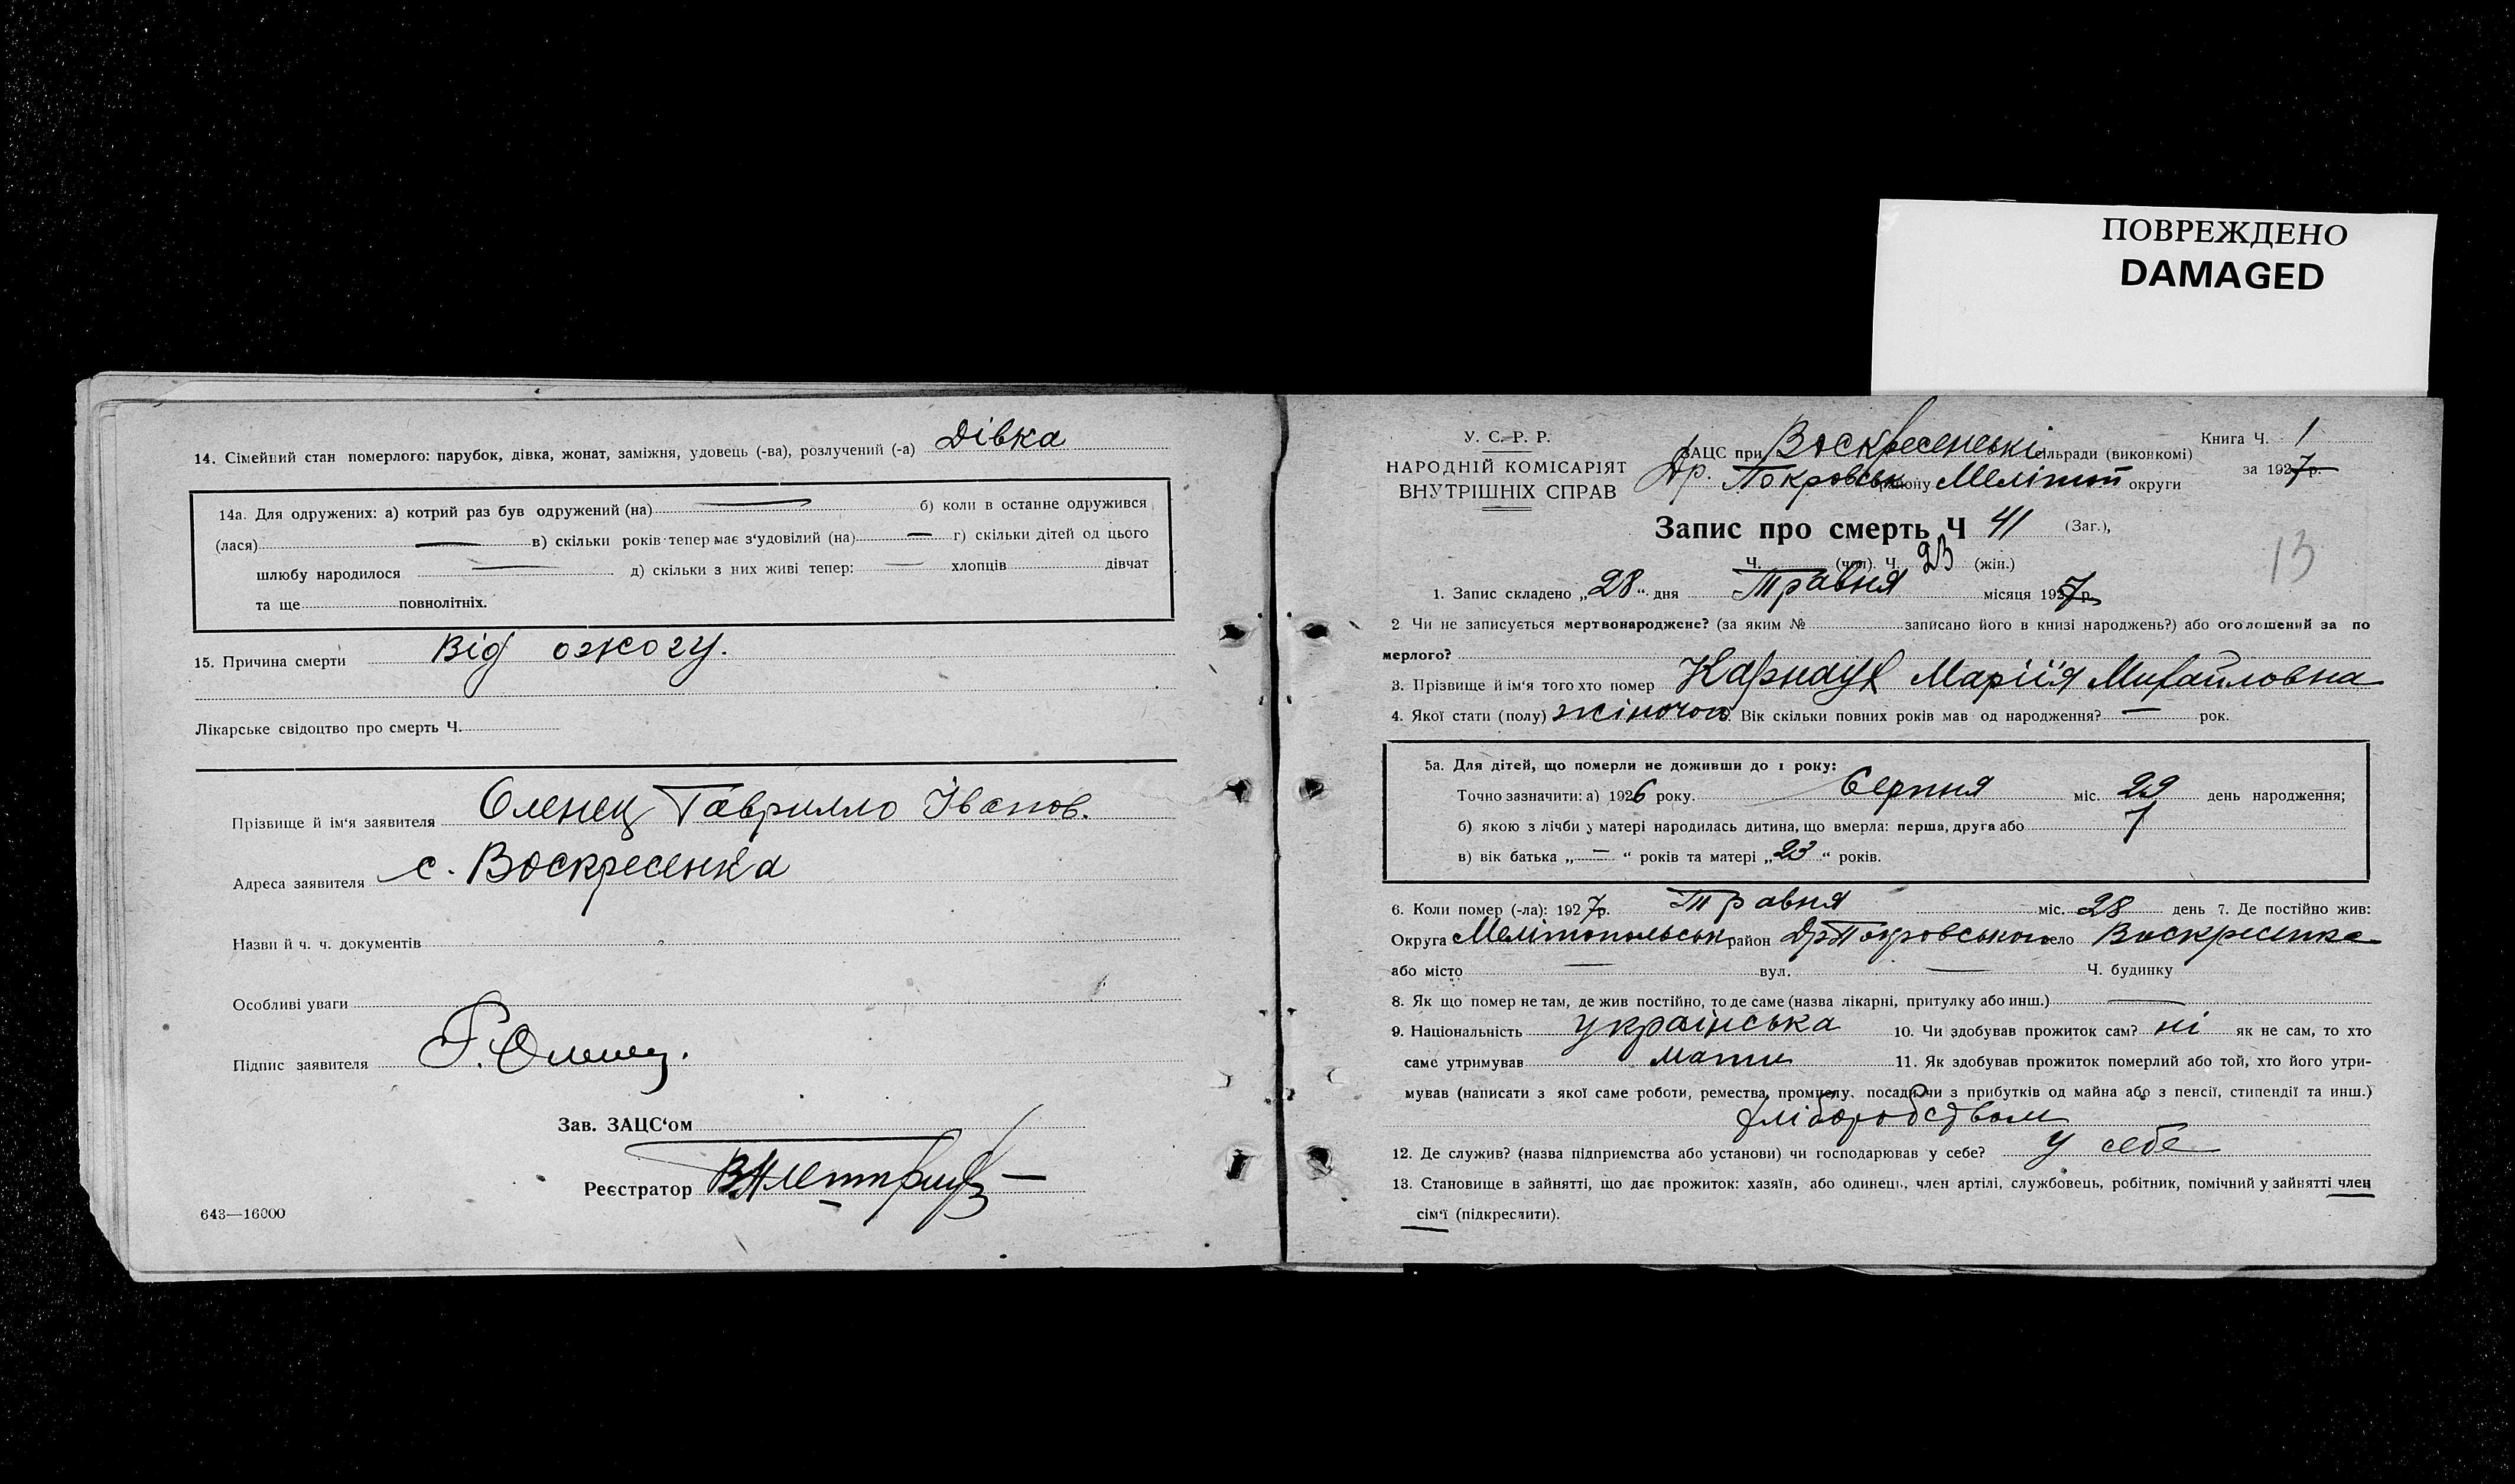 ПОВРЕЖДЕНО
DAMAGED
14. Сімейний стан померлого: парубок, дівка, жонат, заміжня, удовець (-ва), розлучений (-а) Дівка
14а. Для одружених: а) котрий раз був одружений (на) — б) коли в останнє одружився
(лася) — в) скільки років тепер має з'удовілий (на) — г) скільки дітей од цього
шлюбу народилося — д) скільки з них живі тепер: — хлопців дівчат
та ще повнолітніх.
15. Причина смерти Від ожогу.
Лікарське свідоцтво про смерть Ч.
Прізвище й ім'я заявителя Оленец Гаврилло Іванов.
Адреса заявителя с. Воскресенка
Назви й ч. ч. документів
Особливі уваги
Підпис заявителя Г. Оленец.
Зав. ЗАЦС'ом
Реєстратор
643—16000
У. С. Р. Р.
НАРОДНІЙ КОМІСАРІЯТ
ВНУТРІШНІХ СПРАВ
ЗАЦС при Воскресенські сільради (виконкомі)
Др. Покровськ району Меліт округи
Книга Ч. 1
за 1927 р.
Запис про смерть Ч 41 (Заг.),
Ч. — (чол). Ч. 23 (жін.)
13
1. Запис складено „28“ дня Травня місяця 1927 р.
2 Чи не записується мертвонароджене? (за яким № записано його в книзі народжень?) або оголошений за по
мерлого?
3. Прізвище й ім'я того хто помер Карнаух Марія Михайловна
4. Якої стати (полу) жіночого Вік скільки повних років мав од народження? — рок.
5а. Для дітей, що померли не доживши до 1 року:
Точно зазначити: а) 1926 року. Серпня міс. 29 день народження;
б) якою з лічби у матері народилась дитина, що вмерла: перша, друга або 1
в) вік батька „—“ років та матері „23“ років.
6. Коли помер (-ла): 1927р. Травня міс. 28 день 7. Де постійно жив:
Округа Мелітопольськ район Др Покровського село Воскресенка
або місто — вул. — Ч. будинку
8. Як що помер не там, де жив постійно, то де саме (назва лікарні, притулку або инш.) —
9. Національність українська 10. Чи здобував прожиток сам? ні як не сам, то хто
саме утримував мати 11. Як здобував прожиток померлий або той, хто його утри-
мував (написати з якої саме роботи, ремества, промислу, посади чи з прибутків од майна або з пенсії, стипендії та инш.)
хліборобством
12. Де служив? (назва підприємства або установи) чи господарював у себе? у себе
13. Становище в зайнятті, що дає прожиток: хазяїн, або одинець, член артілі, службовець, робітник, помічний у зайнятті член
сім'ї (підкреслити).